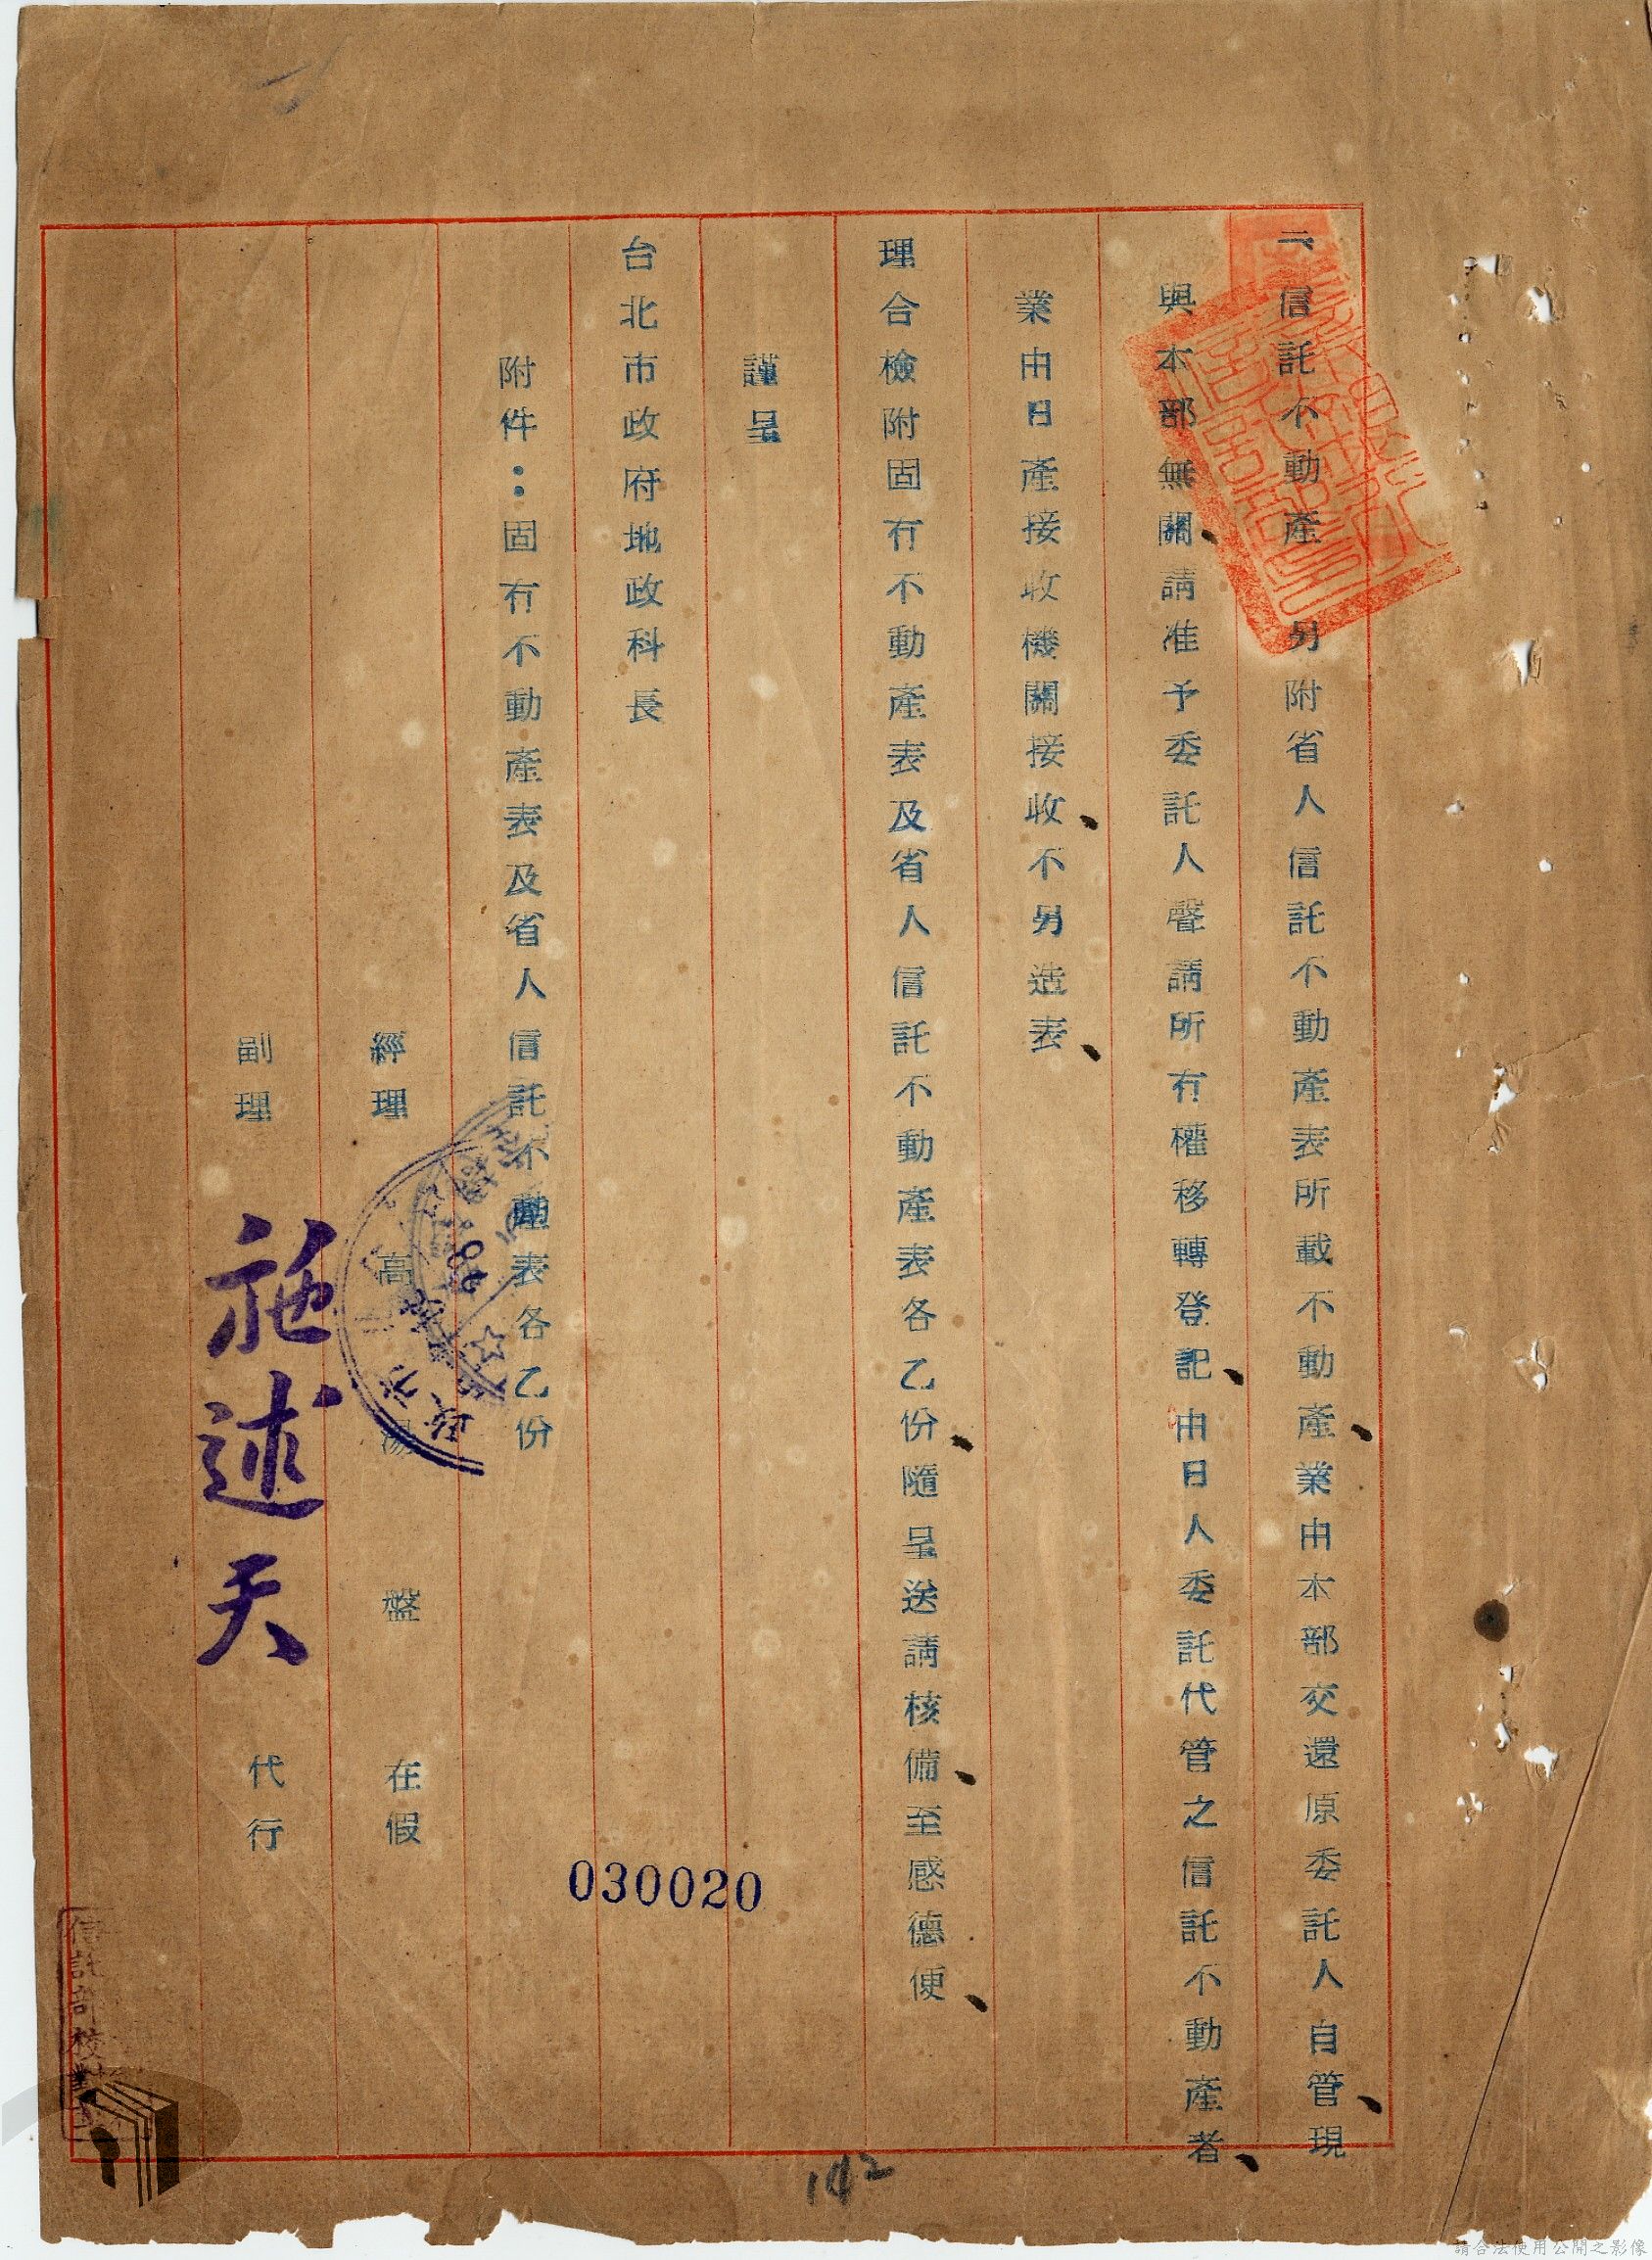 二、信託不動產另附省人信託不動產表所載不動產、業由本部交還原委託人自管、現
與本部無關、請准予委託人聲請所有權移轉登記、由日人委託代管之信託不動產者、
業由日產接收機關接收、不另造表、
理合檢附固有不動產表及省人信託不動產表各乙份、隨呈送請核備、至感德便、
謹呈
台北市政府地政科長
附件：固有不動產表及省人信託不動產表各乙份
經理 高湯盤 在假
副理 施述天 代行
030020
信託部校對
142
請合法使用公開之影像